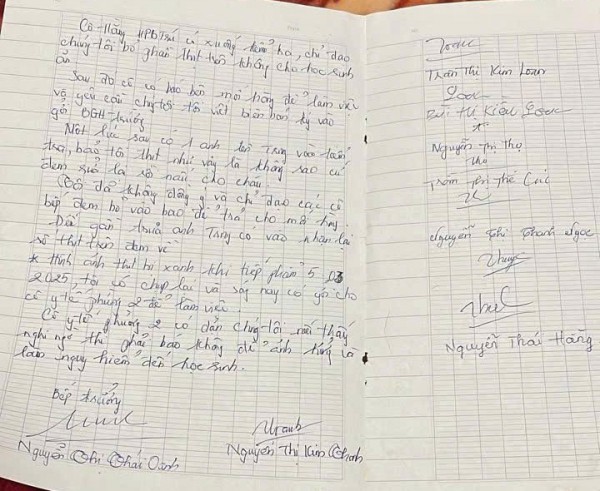 Cô Hằng HPBTrú có xuống kiểm tra, chỉ đạo
chúng tôi bỏ phần thịt trên không cho học sinh
ăn
Sau đó cô có báo bên mối hàng để làm việc
và yêu cầu chúng tôi viết biên bản ký vào
gởi BGH trường
Một lúc sau có 1 anh tên Trung vào kiểm
tra, bảo tôi thịt như vậy là không sao cứ
đem rửa lại rồi nấu cho cháu
Cô đó không đồng ý và chỉ đạo các cô
bếp đem bỏ vào bao để trả cho mối hàng.
Đến gần trưa anh Trung có vào nhận lại
số thịt trên đem về
* Hình ảnh thịt bị xanh khi tiếp phẩm 5 03
2025, tôi có chụp lại và sáng nay có gởi cho
cô y tế phường 2 để làm việc.
Cô y tế phường 2 có dặn chúng tôi nếu thấy
nghi ngờ thì phải báo không để ảnh hưởng và
làm nguy hiểm đến học sinh.
Bếp trưởng
Nguyễn Thị Thái Oanh
Nguyễn Thị Kim Thanh
Trần Thị Kim Loan
Bùi Thị Kiều Loan
Nguyễn Thị Thọ
Thọ
Trần Thị Thế Cúc
Nguyễn Thị Thanh Ngọc
Nguyễn Thái Hằng